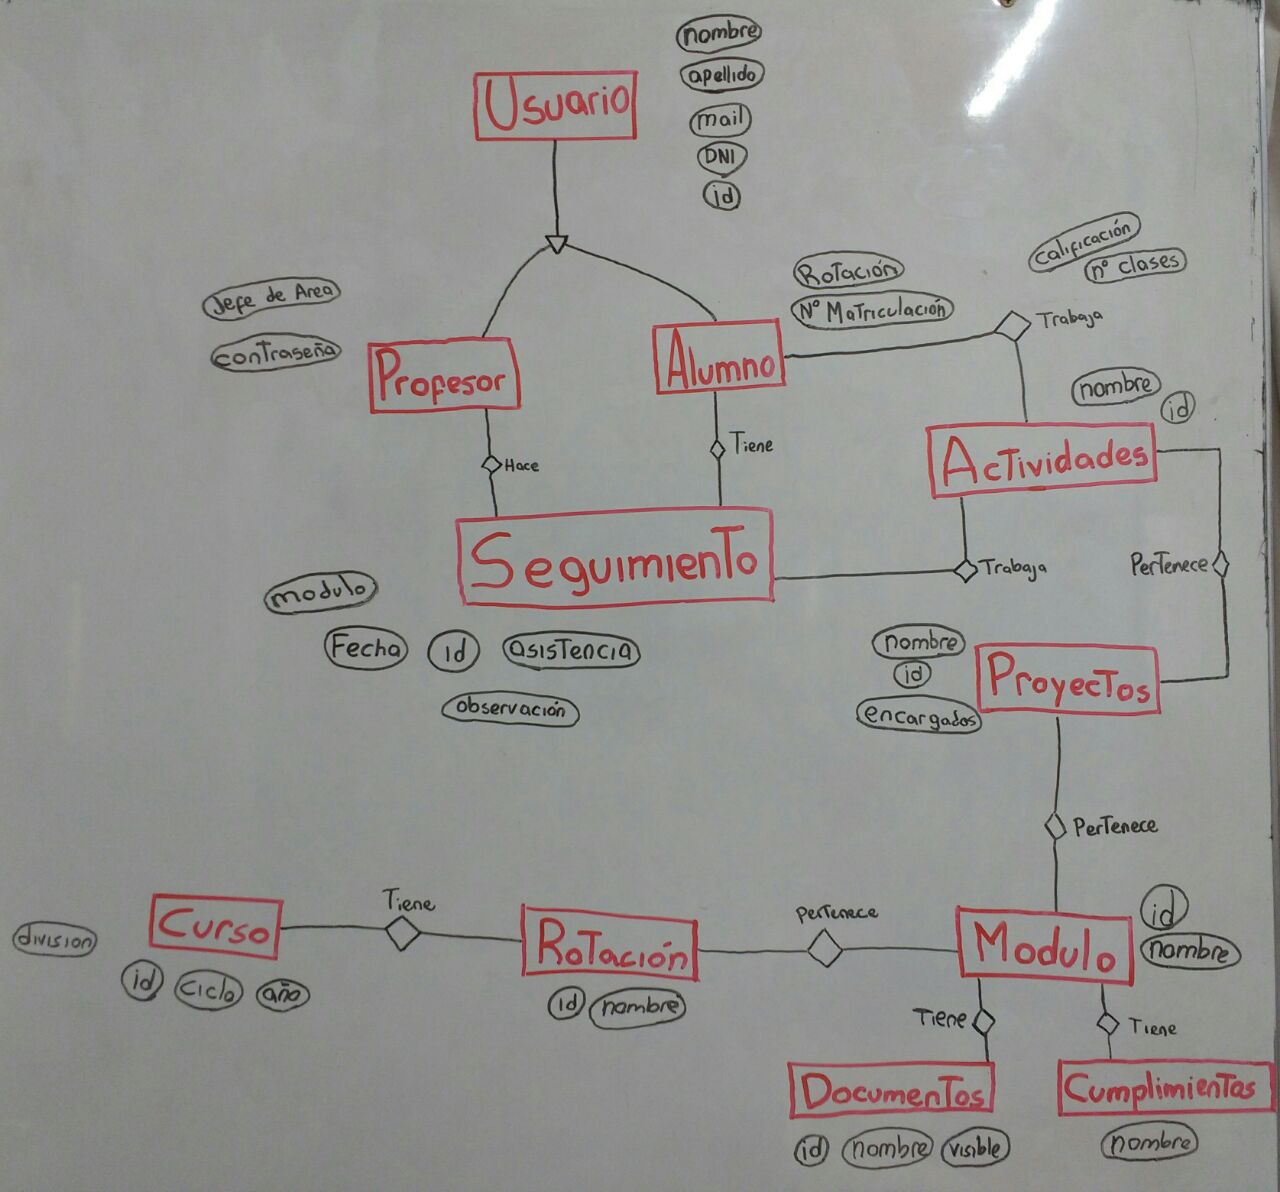 nombre
apellido
mail
DNI
id
Usuario
Jefe de Area
contraseña
Profesor
Alumno
Rotación
Nº Matriculación
calificación
nº clases
Trabaja
nombre
id
Actividades
Hace
Tiene
Seguimiento
Trabaja
Pertenece
modulo
Fecha
id
asistencia
observación
nombre
id
encargados
Proyectos
Pertenece
division
Curso
id
ciclo
año
Tiene
Rotación
id
nombre
Pertenece
Modulo
id
nombre
Tiene
Tiene
Documentos
id
nombre
visible
Cumplimientos
nombre